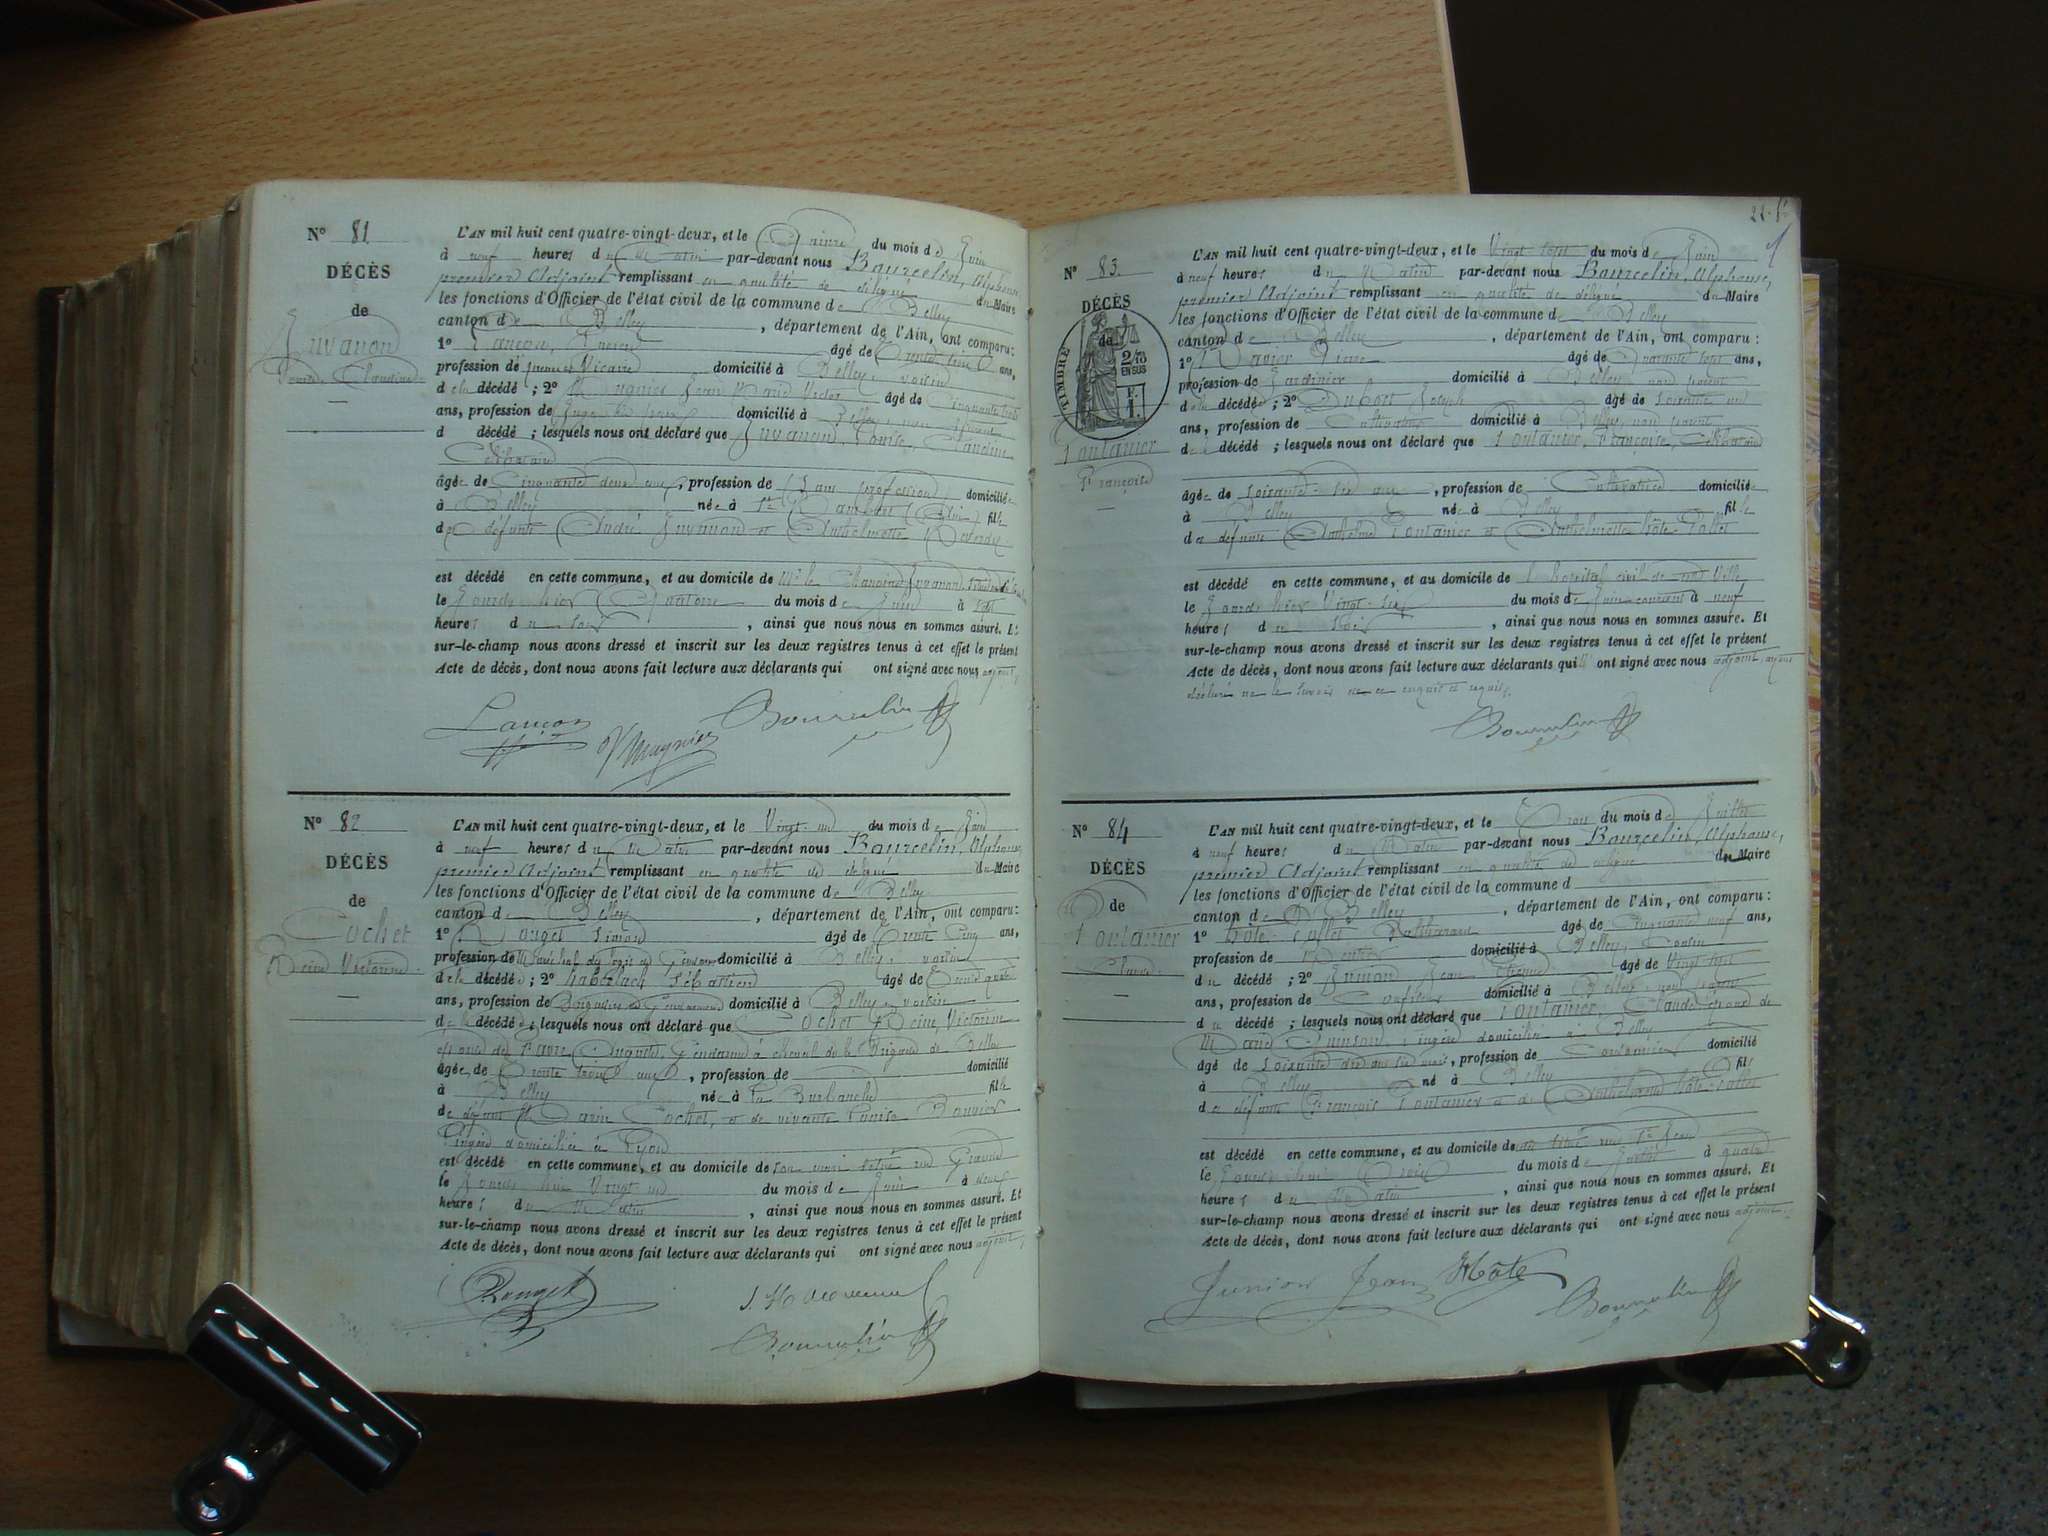 N° 81
DÉCÈS
de
Juvanon
Louise, Claudine
L'AN mil huit cent quatre-vingt-deux, et le Quinze du mois de Juin
à neuf heures du Matin par-devant nous Bourcelin, Alphonse
premier Adjoint remplissant en qualité de délégué du Maire
les fonctions d'Officier de l'état civil de la commune de Belley
canton de Belley, département de l'Ain, ont comparu:
1° Lançon, âgé de ans,
profession de Vicaire domicilié à Belley, voisin
de la décédée; 2° Mugnier Jean Marie Victor âgé de Cinquante
ans, profession de Juge de domicilié à Belley, non parent
d décédé; lesquels nous ont déclaré que Juvanon, Louise, Claudine
Célibataire
âgée de Cinquante deux ans, profession de Sans profession, domiciliée
à Belley née à St Rambert (Ain) fille
de défunts André Juvanon et Anthelmette
est décédé en cette commune, et au domicile de Mr le Chanoine Juvanon
le Jourd'hier Quatorze du mois de Juin à sept
heures du soir, ainsi que nous nous en sommes assuré. Et
sur-le-champ nous avons dressé et inscrit sur les deux registres tenus à cet effet le présent
Acte de décès, dont nous avons fait lecture aux déclarants qui ont signé avec nous adjoint.
Lançon
Mugnier
Bourcelin
N° 82
DÉCÈS
de
Cochet
Reine Victorine
L'AN mil huit cent quatre-vingt-deux, et le Vingt-un du mois de Juin
à neuf heures du Matin par-devant nous Bourcelin, Alphonse,
premier Adjoint remplissant en qualité de délégué du Maire
les fonctions d'Officier de l'état civil de la commune de Belley
canton de Belley, département de l'Ain, ont comparu:
1° Rouget Simon âgé de Trente Cinq ans,
profession de Maréchal des logis de Gendarmerie domicilié à Belley, voisin
de la décédée; 2° Sébastien âgé de
ans, profession de Brigadier de Gendarmerie domicilié à Belley, voisin
de la décédée; lesquels nous ont déclaré que Cochet Reine Victorine
épouse de Favre, gendarme à cheval de la Brigade de Belley
âgée de Trente trois ans, profession de domicilié
à Belley née à La Burbanche fille
de défunt Marin Cochet, et de vivante Louise Bouvier
domiciliée à Lyon
est décédé en cette commune, et au domicile de son mari
le Jourd'hui Vingt un du mois de Juin à
heures du Matin, ainsi que nous nous en sommes assuré. Et
sur-le-champ nous avons dressé et inscrit sur les deux registres tenus à cet effet le présent
Acte de décès, dont nous avons fait lecture aux déclarants qui ont signé avec nous adjoint.
Rouget
Bourcelin
N° 83
DÉCÈS
de
TIMBRE
2/10 EN SUS
F. 1.
Pontanier
Françoise
L'AN mil huit cent quatre-vingt-deux, et le Vingt sept du mois de Juin
à neuf heures du Matin par-devant nous Bourcelin, Alphonse,
premier Adjoint remplissant en qualité de délégué du Maire
les fonctions d'Officier de l'état civil de la commune de Belley
canton de Belley, département de l'Ain, ont comparu:
1° Pierre âgé de Quarante sept ans,
profession de Jardinier domicilié à Belley, non parent
de la décédée; 2° Duport Joseph âgé de soixante un
ans, profession de Cultivateur domicilié à Belley, non parent
de la décédée; lesquels nous ont déclaré que Pontanier, Françoise, Célibataire
âgée de soixante six ans, profession de Cultivatrice domiciliée
à Belley née à Belley fille
de défunts Anthelme Pontanier et Anthelmette Hôte-Pallet
est décédé en cette commune, et au domicile de l'hôpital civil de cette Ville
le Jourd'hier Vingt-six du mois de Juin courant à neuf
heures du soir, ainsi que nous nous en sommes assuré. Et
sur-le-champ nous avons dressé et inscrit sur les deux registres tenus à cet effet le présent
Acte de décès, dont nous avons fait lecture aux déclarants qui ont signé avec nous adjoint, ayant
déclaré ne le savoir de ce enquis et requis.
Bourcelin
N° 84
DÉCÈS
de
Pontanier
Claude
L'AN mil huit cent quatre-vingt-deux, et le Trois du mois de Juillet
à neuf heures du Matin par-devant nous Bourcelin, Alphonse,
premier Adjoint remplissant en qualité de délégué du Maire
les fonctions d'Officier de l'état civil de la commune d
canton de Belley, département de l'Ain, ont comparu:
1° Hôte-Pallet âgé de Cinquante neuf ans,
profession de Rentier domicilié à Belley, Cousin
du décédé; 2° Junion Jean Étienne âgé de Vingt sept
ans, profession de domicilié à Belley, non parent
du décédé; lesquels nous ont déclaré que Pontanier, Claude époux de
Marie domiciliée à Belley
âgé de Soixante dix ans, profession de Cordonnier domicilié
à Belley né à Belley fils
de défunts François Pontanier et de Hôte-Pallet
est décédé en cette commune, et au domicile de rue St Jean
le Jourd'hui Trois du mois de Juillet à quatre
heures du Matin, ainsi que nous nous en sommes assuré. Et
sur-le-champ nous avons dressé et inscrit sur les deux registres tenus à cet effet le présent
Acte de décès, dont nous avons fait lecture aux déclarants qui ont signé avec nous adjoint.
Junion Jean
Hôte
Bourcelin